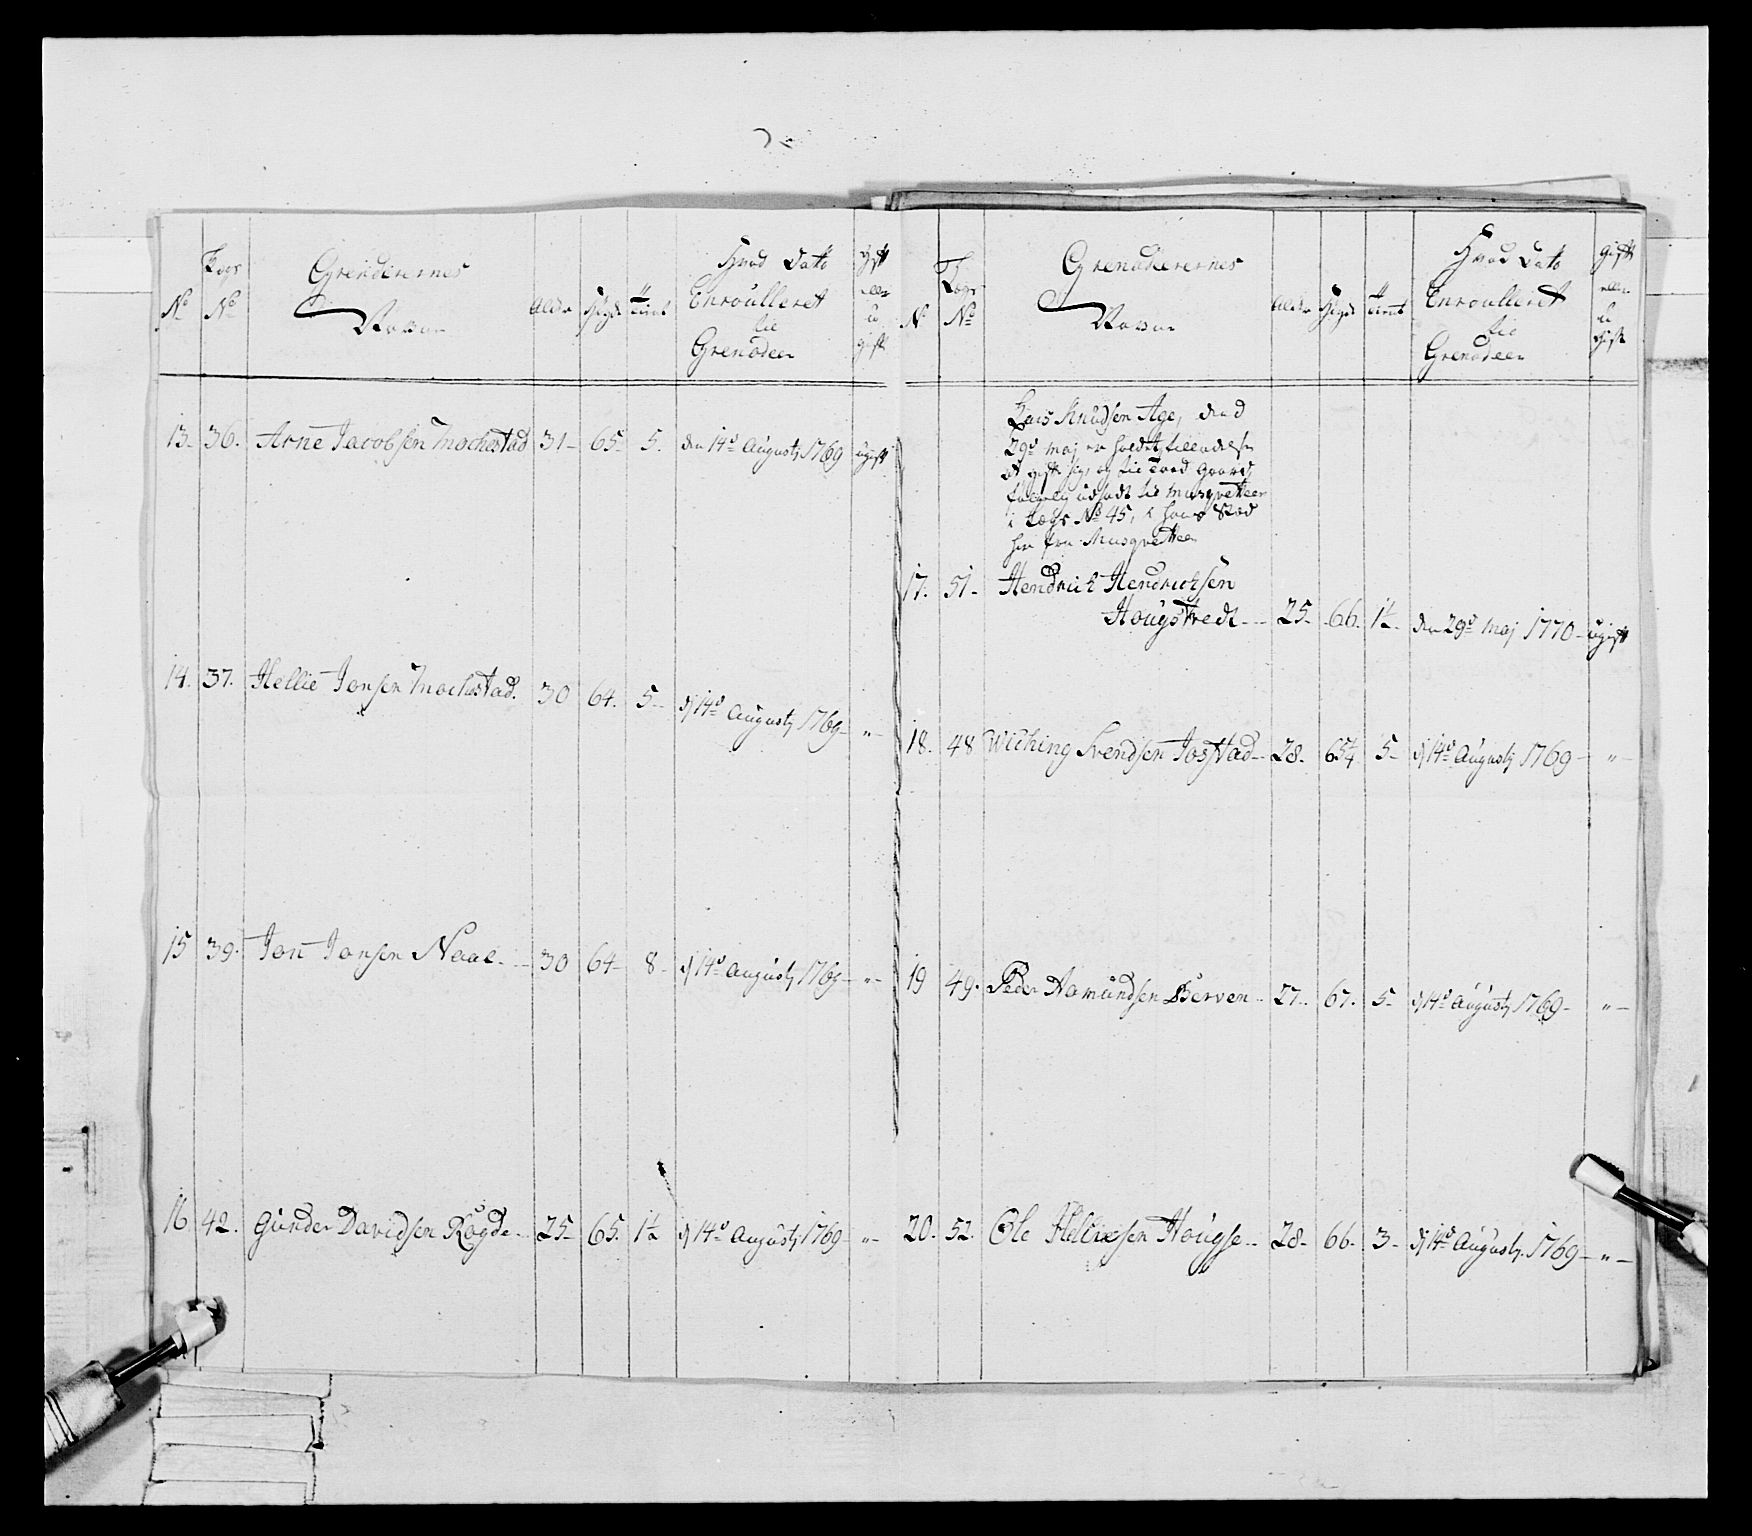 No
Lægs No
Grenderernes Navne
Alder
Høyde
Tient
Hvad Dato Enroulleret til Grenadeer
Gift eller u gift
13. 36. Arne Jacobsen Mochestad 31 - 65 - 5. den 14de Augustj 1769 ugift
14. 37. Hellie Jonsen Mochestad. 30 64. 5 - dj 14de Augustj 1769 - " -
15 39. Jon Jonsen Naae - 30 64 - 8 - dj 14de Augustj 1769 - " -
16 42. Gunder Davidsen Rogde - 25 - 65. 1½ dj 14de Augustj 1769 " -
No
Lægs No
Grenaderernes Navne
Alder
Høyde
Tient
Hvad Dato Enroulleret til Grenadeer
Gift eller u gift
Lars Knudsen Age, den
29de Maj er holdet tilladelse
at gift sig, og til
udsadt til Musqvetteer
i Lægs No 45, i hans Stæd
her fra Musqvetteer
17. 51 - Hendrich Hendrichsen
Hougstvedt - 25 - 66. 1½ - den 29de Maj 1770 - ugift
18. 48 Wiching Svendsen Josstad - 28 - 65¼ 5 - dj 14de Augustj 1769 - " -
19 49. Peder Aamundsen Berven - 27 - 67. 5 - dj 14de Augustj 1769 - " -
20. 52. Ole Hellixsen Hougse - 28 - 66 - 3 - dj 14de Augustj. 1769 - " -